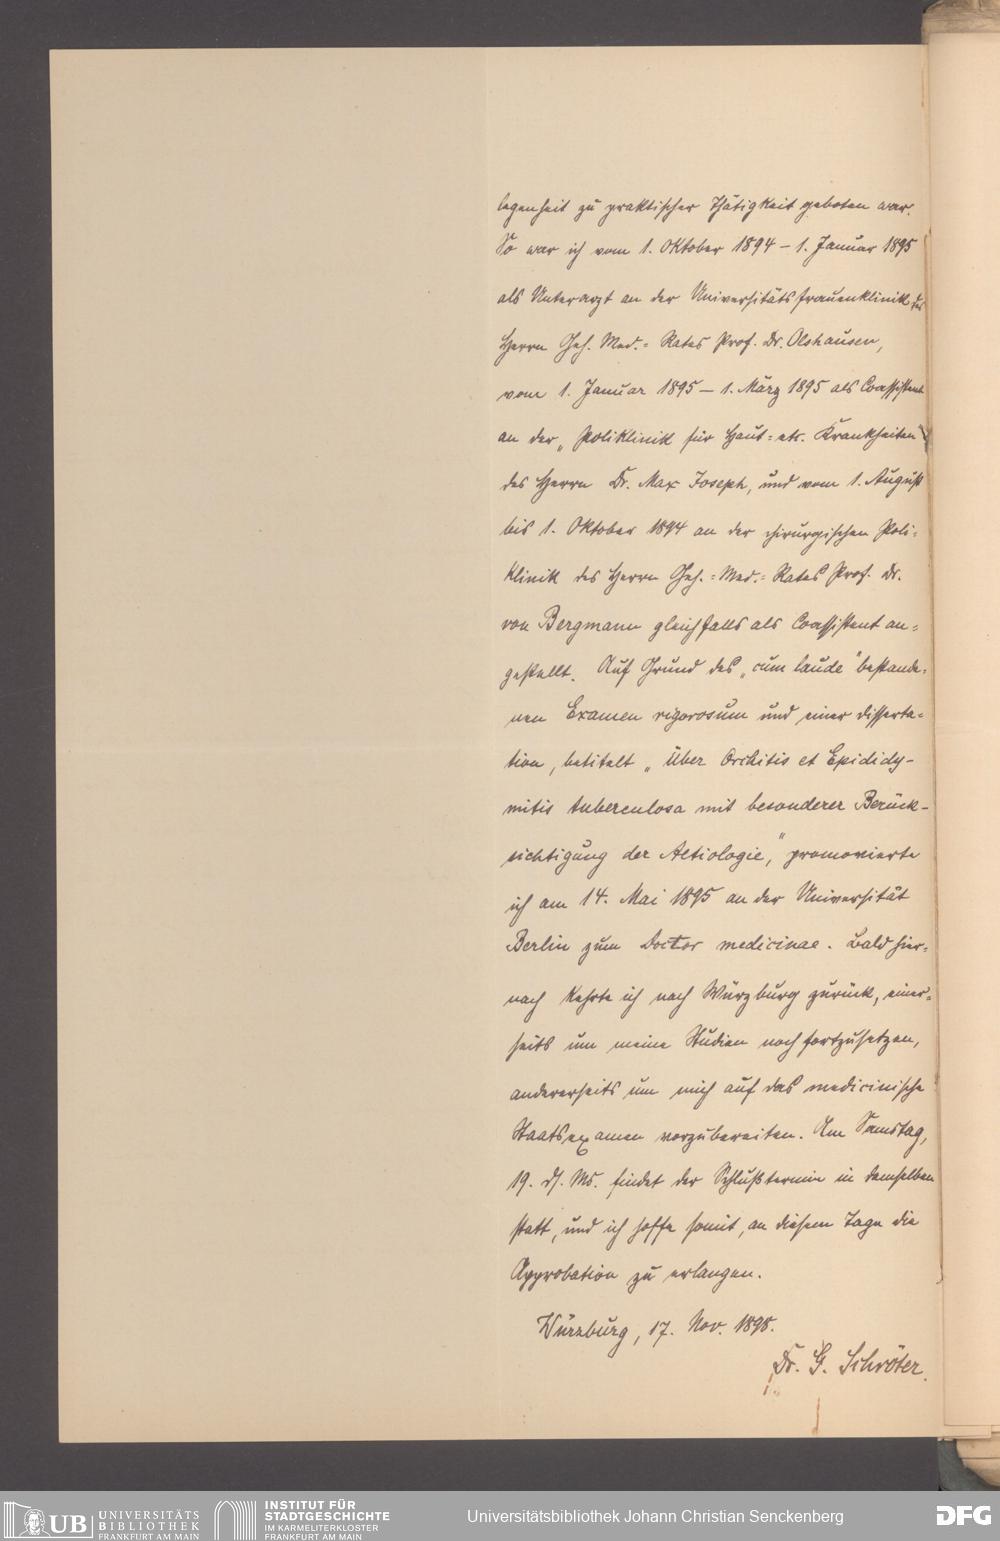 legenheit zu praktischer Thätigkeit geboten war.
So war ich vom 1. Oktober 1894 – 1. Januar 1895
als Unterarzt an der Universitätsfrauenklinik des
Herrn Geh. Med.= Rates Prof. Dr. Olshausen,
vom 1. Januar 1895 – 1. März 1895 als Coassistent
an der „Poliklinik für Haut= etc. Krankheiten"
des Herrn Dr. Max Joseph, und vom 1. August
bis 1. Oktober 1894 an der chirurgischen Poli=
klinik des Herrn Geh.=Med.= Rates Prof. Dr.
von Bergmann gleichfalls als Coassistent an=
gestellt. Auf Grund des „cum laude" bestande=
nen Examen rigorosum und einer Disserta=
tion, betitelt „Über Orchitis et Epididy-
mitis tuberculosa mit besonderer Berück-
sichtigung der Aetiologie," promovierte
ich am 14. Mai 1895 an der Universität
Berlin zum Doctor medicinae. Bald hier=
nach kehrte ich nach Würzburg zurück, einer=
seits um meine Studien noch fortzusetzen,
andererseits um mich auf das medicinische
Staatsexamen vorzubereiten. Am Samstag,
19. ds. Ms. findet der Schlußtermin in demselben
statt, und ich hoffe somit, an diesem Tage die
Approbation zu erlangen.
Würzburg, 17. Nov. 1898.
Dr. G. Schröter.
UB UNIVERSITÄTS
BIBLIOTHEK
FRANKFURT AM MAIN
INSTITUT FÜR
STADTGESCHICHTE
IM KARMELITERKLOSTER
FRANKFURT AM MAIN
Universitätsbibliothek Johann Christian Senckenberg
DFG